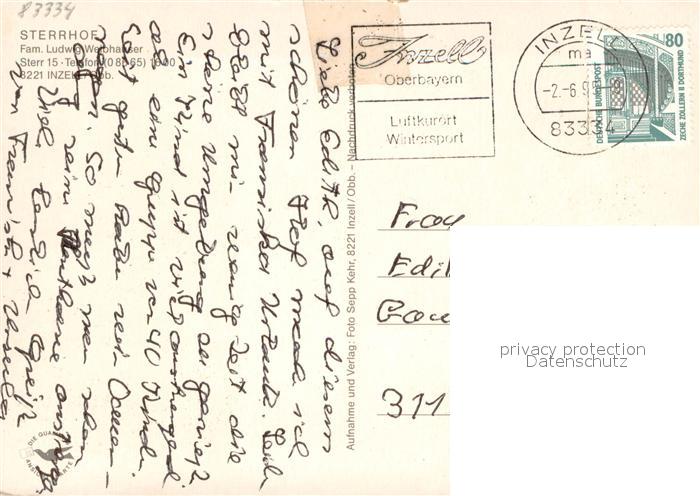 83334
STERRHOF
Fam. Ludwig Weibhauser
Sterr 15 · Telefon (0 86 65) 16 00
8221 INZELL / Obb.
Liebe Edith, auf diesem
schönen Hof mache ich
mit Franziska Urlaub. Leider
bleibt mir wenig Zeit die
schöne Umgebung zu genießen.
Ein Kind ist anstrengender
als eine Gruppe von 40 Kindern.
So muß man
Viele herzliche Grüße
von Franziska + Ursula
DIE QUA
ANSICHTSKARTE
Aufnahme und Verlag: Foto Sepp Kehr, 8221 Inzell/Obb. – Nachdruck verboten
Inzell
Oberbayern
Luftkurort
Wintersport
INZELL
ma
-2.-6.9
83334
80
DEUTSCHE BUNDESPOST
ZECHE ZOLLERN II DORTMUND
Frau
Edi
311
privacy protection
Datenschutz